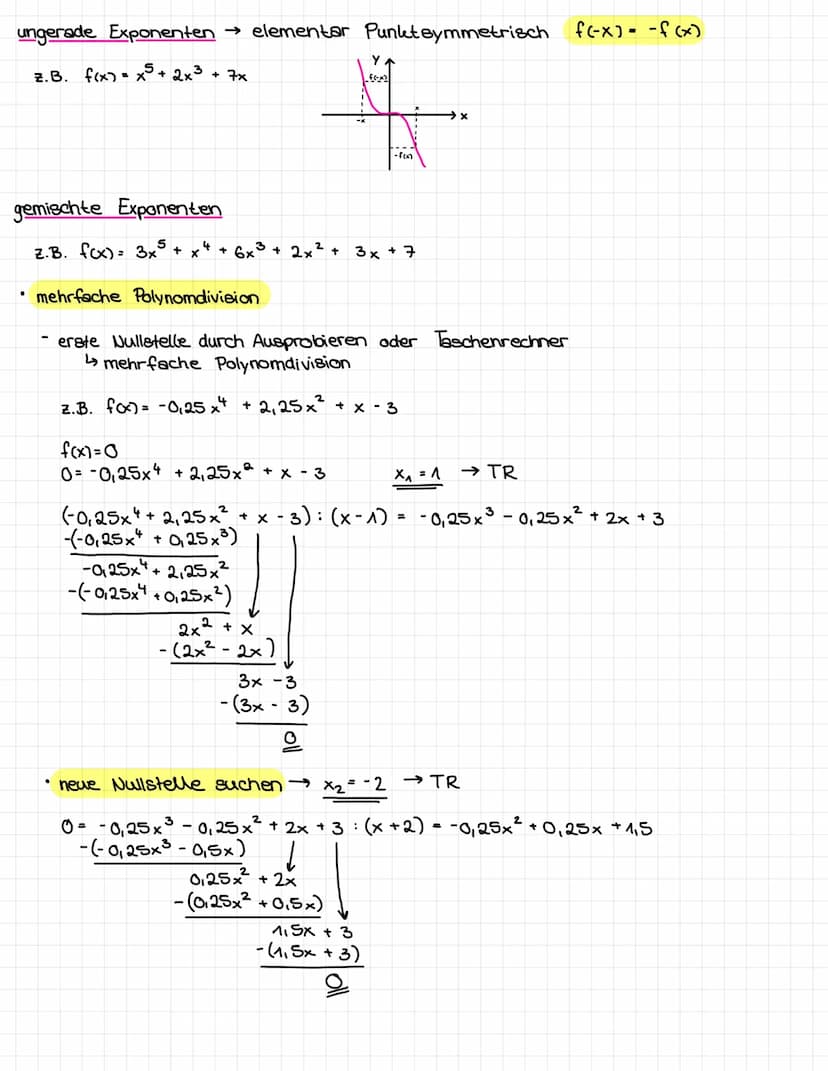 ungerade Exponenten → elementar Punktsymmetrisch f(-x) = -f(x)
z.B. f(x) = x⁵ + 2x³ + 7x
y
f(-x)
-x x x
-f(x)
gemischte Exponenten
z.B. f(x) = 3x⁵ + x⁴ + 6x³ + 2x² + 3x + 7
• mehrfache Polynomdivision
- erste Nullstelle durch Ausprobieren oder Taschenrechner
↳ mehrfache Polynomdivision
z.B. f(x) = -0,25x⁴ + 2,25x² + x - 3
f(x)=0
0 = -0,25x⁴ + 2,25x² + x - 3 x₁ = 1 → TR
(-0,25x⁴ + 2,25x² + x - 3) : (x-1) = -0,25x³ - 0,25x² + 2x + 3
-(-0,25x⁴ + 0,25x³)
-0,25x⁴ + 2,25x²
-(-0,25x⁴ + 0,25x²)
2x² + x
-(2x² - 2x)
3x - 3
-(3x - 3)
0
• neue Nullstelle suchen → x₂ = -2 → TR
0 = -0,25x³ - 0,25x² + 2x + 3 : (x+2) = -0,25x² + 0,25x + 1,5
-(-0,25x³ - 0,5x)
0,25x² + 2x
-(0,25x² + 0,5x)
1,5x + 3
-(1,5x + 3)
0